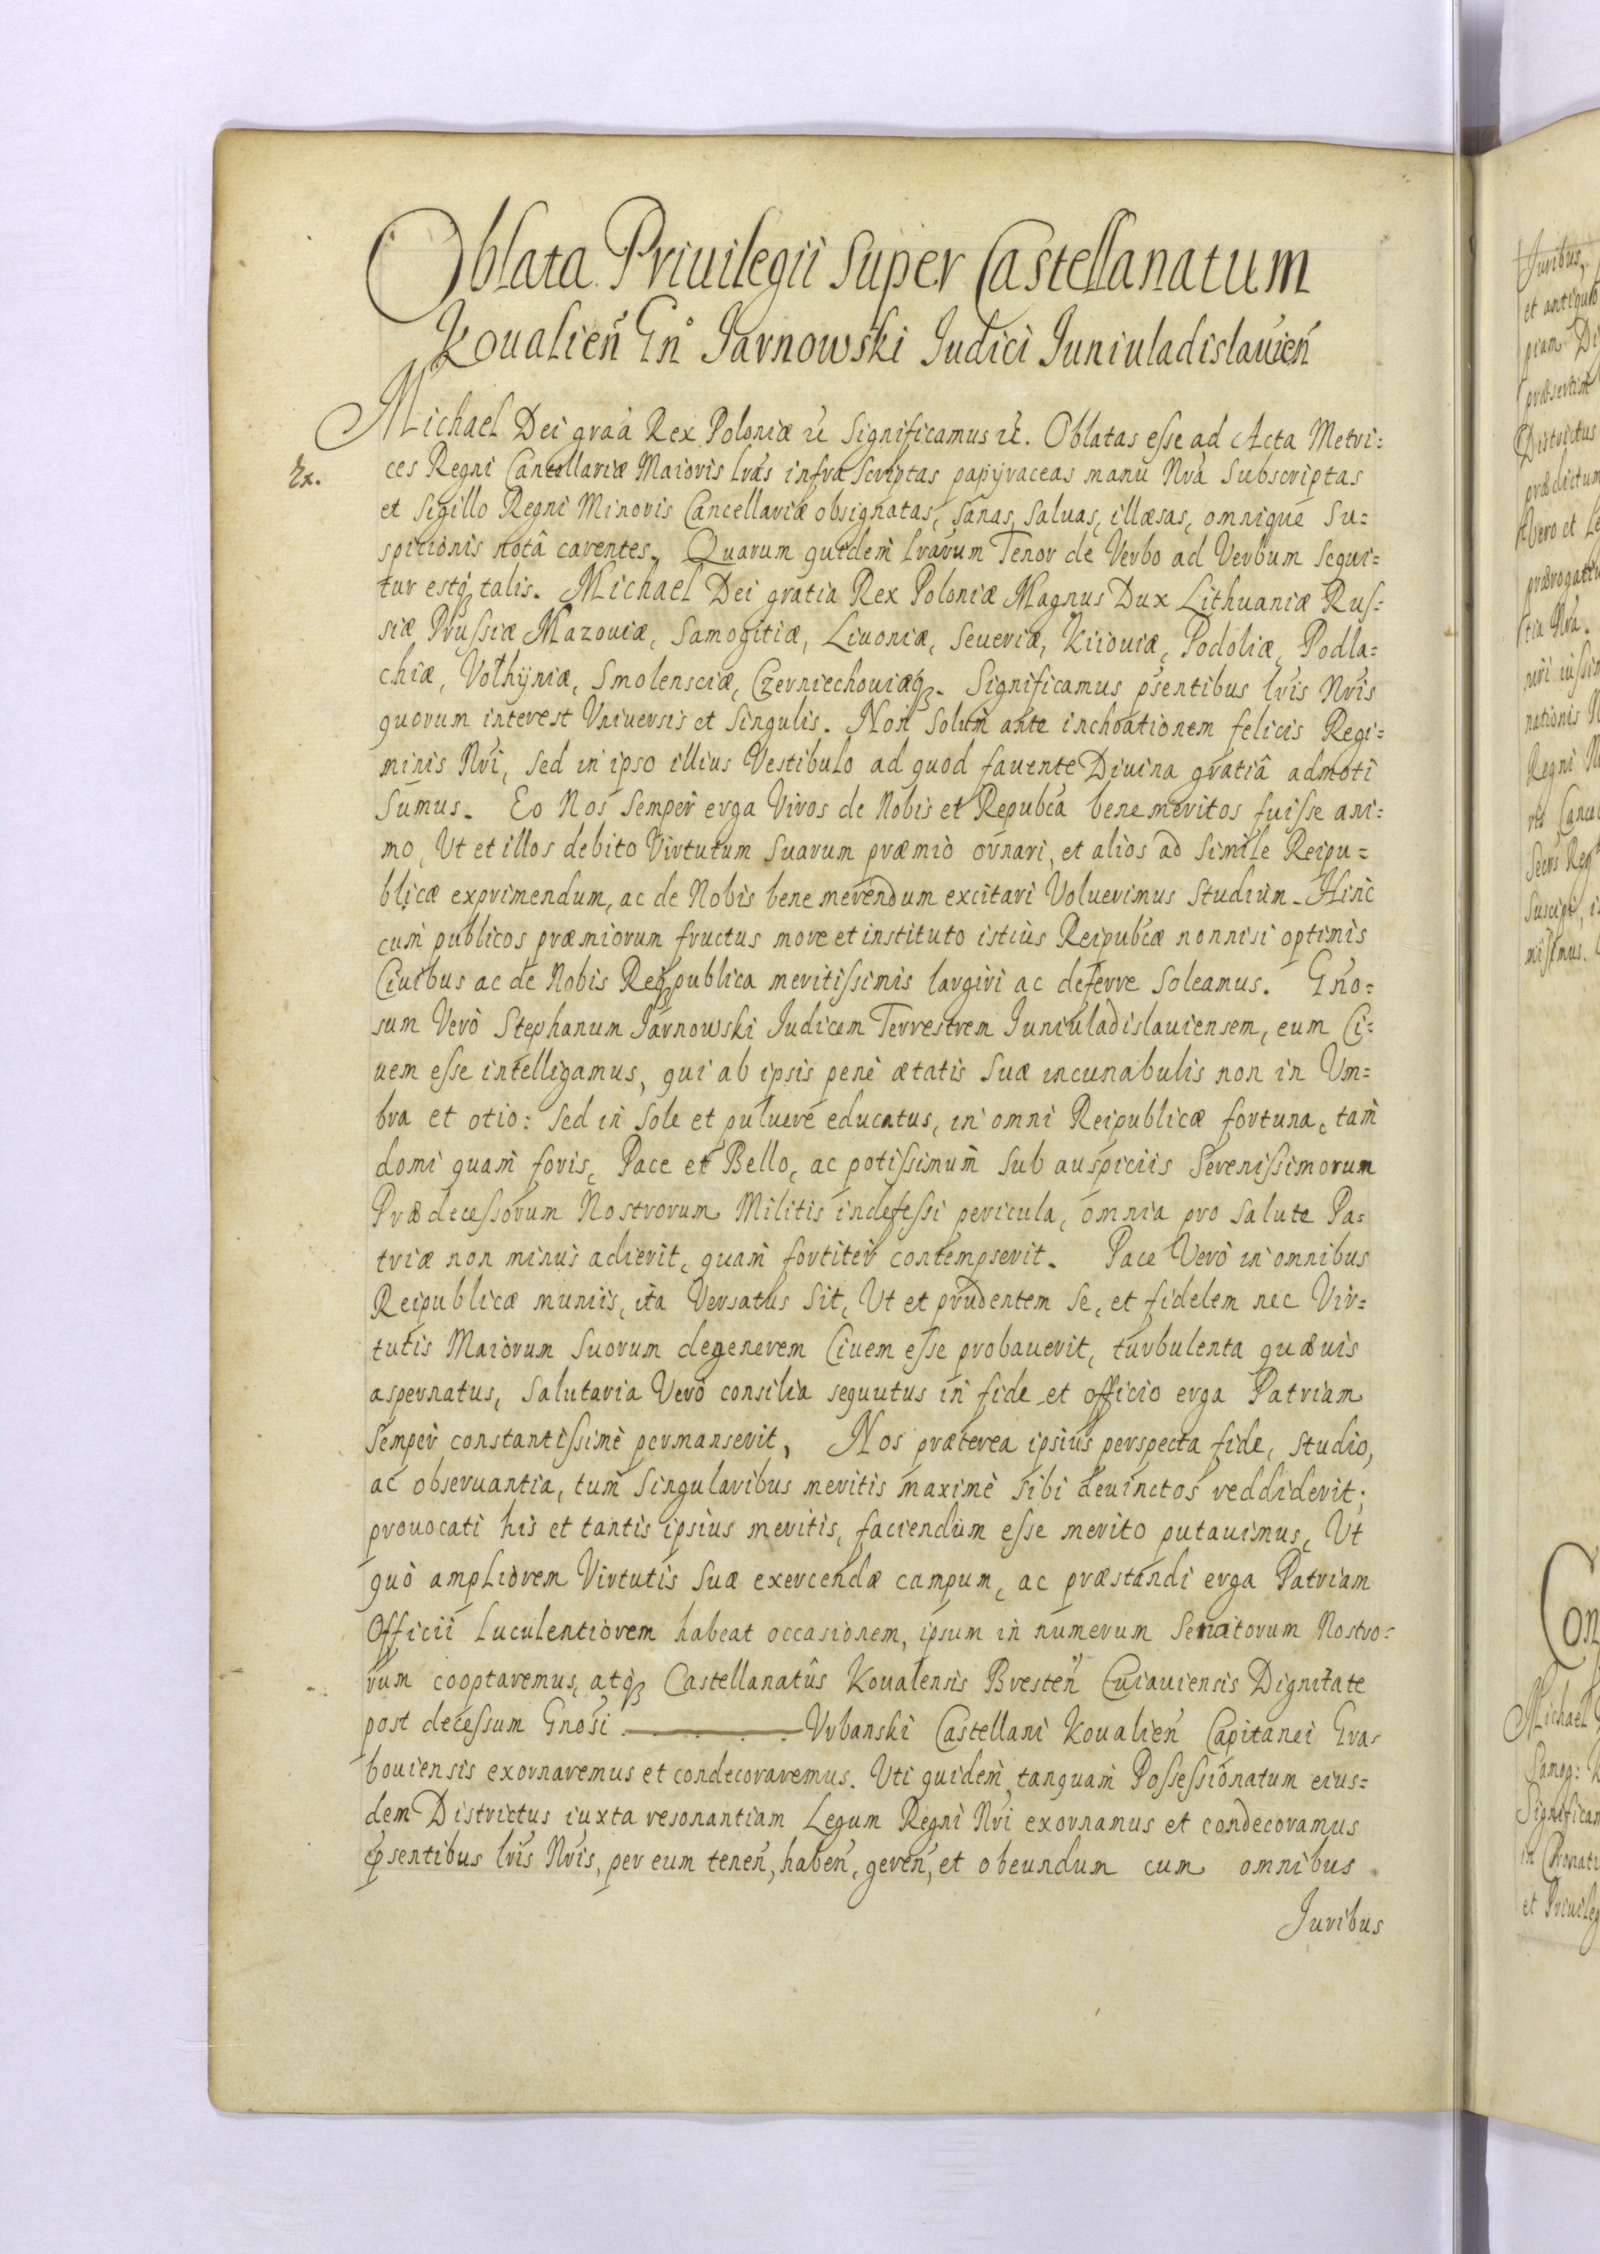 Oblata Priuilegii super Castellanatum
Koualień Gn̊ Jarnowski Judici Juniuladislauień
Michael Dei graa Rex Poloniæ &c Significamus &c. Oblatas esse ad Acta Metri=
Ex.
ces Regni Cancellariæ Maioris lras infra scriptas papÿraceas manu Nrâ subscriptas
et Sigillo Regni Minoris Cancellariæ obsignatas, sanas, saluas, illæsas, omnique su=
spitionis notâ carentes. Quarum quidem lrarum Tenor de Verbo ad Verbum sequi=
tur estq; talis. Michael Dei gratia Rex Poloniæ Magnus Dux Lithuaniæ Rus=
siæ Prussiæ Mazouiæ, Samogitiæ, Liuoniæ, Seueriæ, Kiiouiæ, Podoliæ, Podla=
chiæ, Volhÿniæ, Smolensciæ, Czerniechouiæq;. Significamus pśentibus lris Nris
quorum interest Vniuersis et singulis. Non solum ante inchoationem felicis Regi=
minis Nri, sed in ipso illius Vestibulo ad quod fauente Diuina gratiâ admoti
sumus. Eo Nos semper erga Viros de Nobis et Repubca bene meritos fuisse ani=
mo, Ut et illos debito Virtutum suarum præmiò ornari, et alios ad simile Reipu=
blicæ exprimendum, ac de Nobis bene merendum excitari Voluerimus studium. Hinc
cum publicos præmiorum fructus more et instituto istius Reipubcæ nonnisi optimis
Ciuibus ac de Nobis Req;publica meritissimis largiri ac deferre soleamus. Gńo=
sum Verò Stephanum Jarnowski Judicem Terrestrem Juniuladislauiensem, eum Ci=
uem esse intelligamus, qui ab ipsis penè ætatis suæ incunabulis non in Um=
bra et otio: sed in sole et puluere educatus, in omni Reipublicæ fortuna, tam
domi quam foris, Pace et Bello, ac potissimum sub auspiciis Serenissimorum
Prædecessorum Nostrorum Militis indefessi pericula, omnia pro salute Pa=
triæ non minus adierit, quam fortiter contempserit. Pace Verò in omnibus
Reipublicæ muniis, ita Versatus sit, Ut et prudentem se, et fidelem nec Vir=
tutis Maiorum suorum degenerem Ciuem esse probauerit, turbulenta quæuis
aspernatus, salutaria Verò consilia sequutus in fide et officio erga Patriam
semper constantissimè permanserit, Nos præterea ipsius perspecta fide, studio,
ac obseruantia, tum singularibus meritis maximè sibi deuinctos reddiderit;
prouocati his et tantis ipsius meritis, faciendum esse merito putauimus, Ut
quò ampliorem Virtutis suæ exercendæ campum, ac præstandi erga Patriam
Officii luculentiorem habeat occasionem, ipsum in numerum Senatorum Nostro=
rum cooptaremus, atq; Castellanatûs Koualensis Bresteń Cuiauiensis Dignitate
post decessum Gnosi ——— Vrbanski Castellani Koualień Capitanei Gra=
bouiensis exornaremus et condecoraremus. Uti quidem tanquam Possessionatum eius=
dem Districtus iuxta resonantiam Legum Regni Nri exornamus et condecoramus
pśentibus lris Nris, per eum teneń, habeń, gereń, et obeundum cum omnibus
Juribus